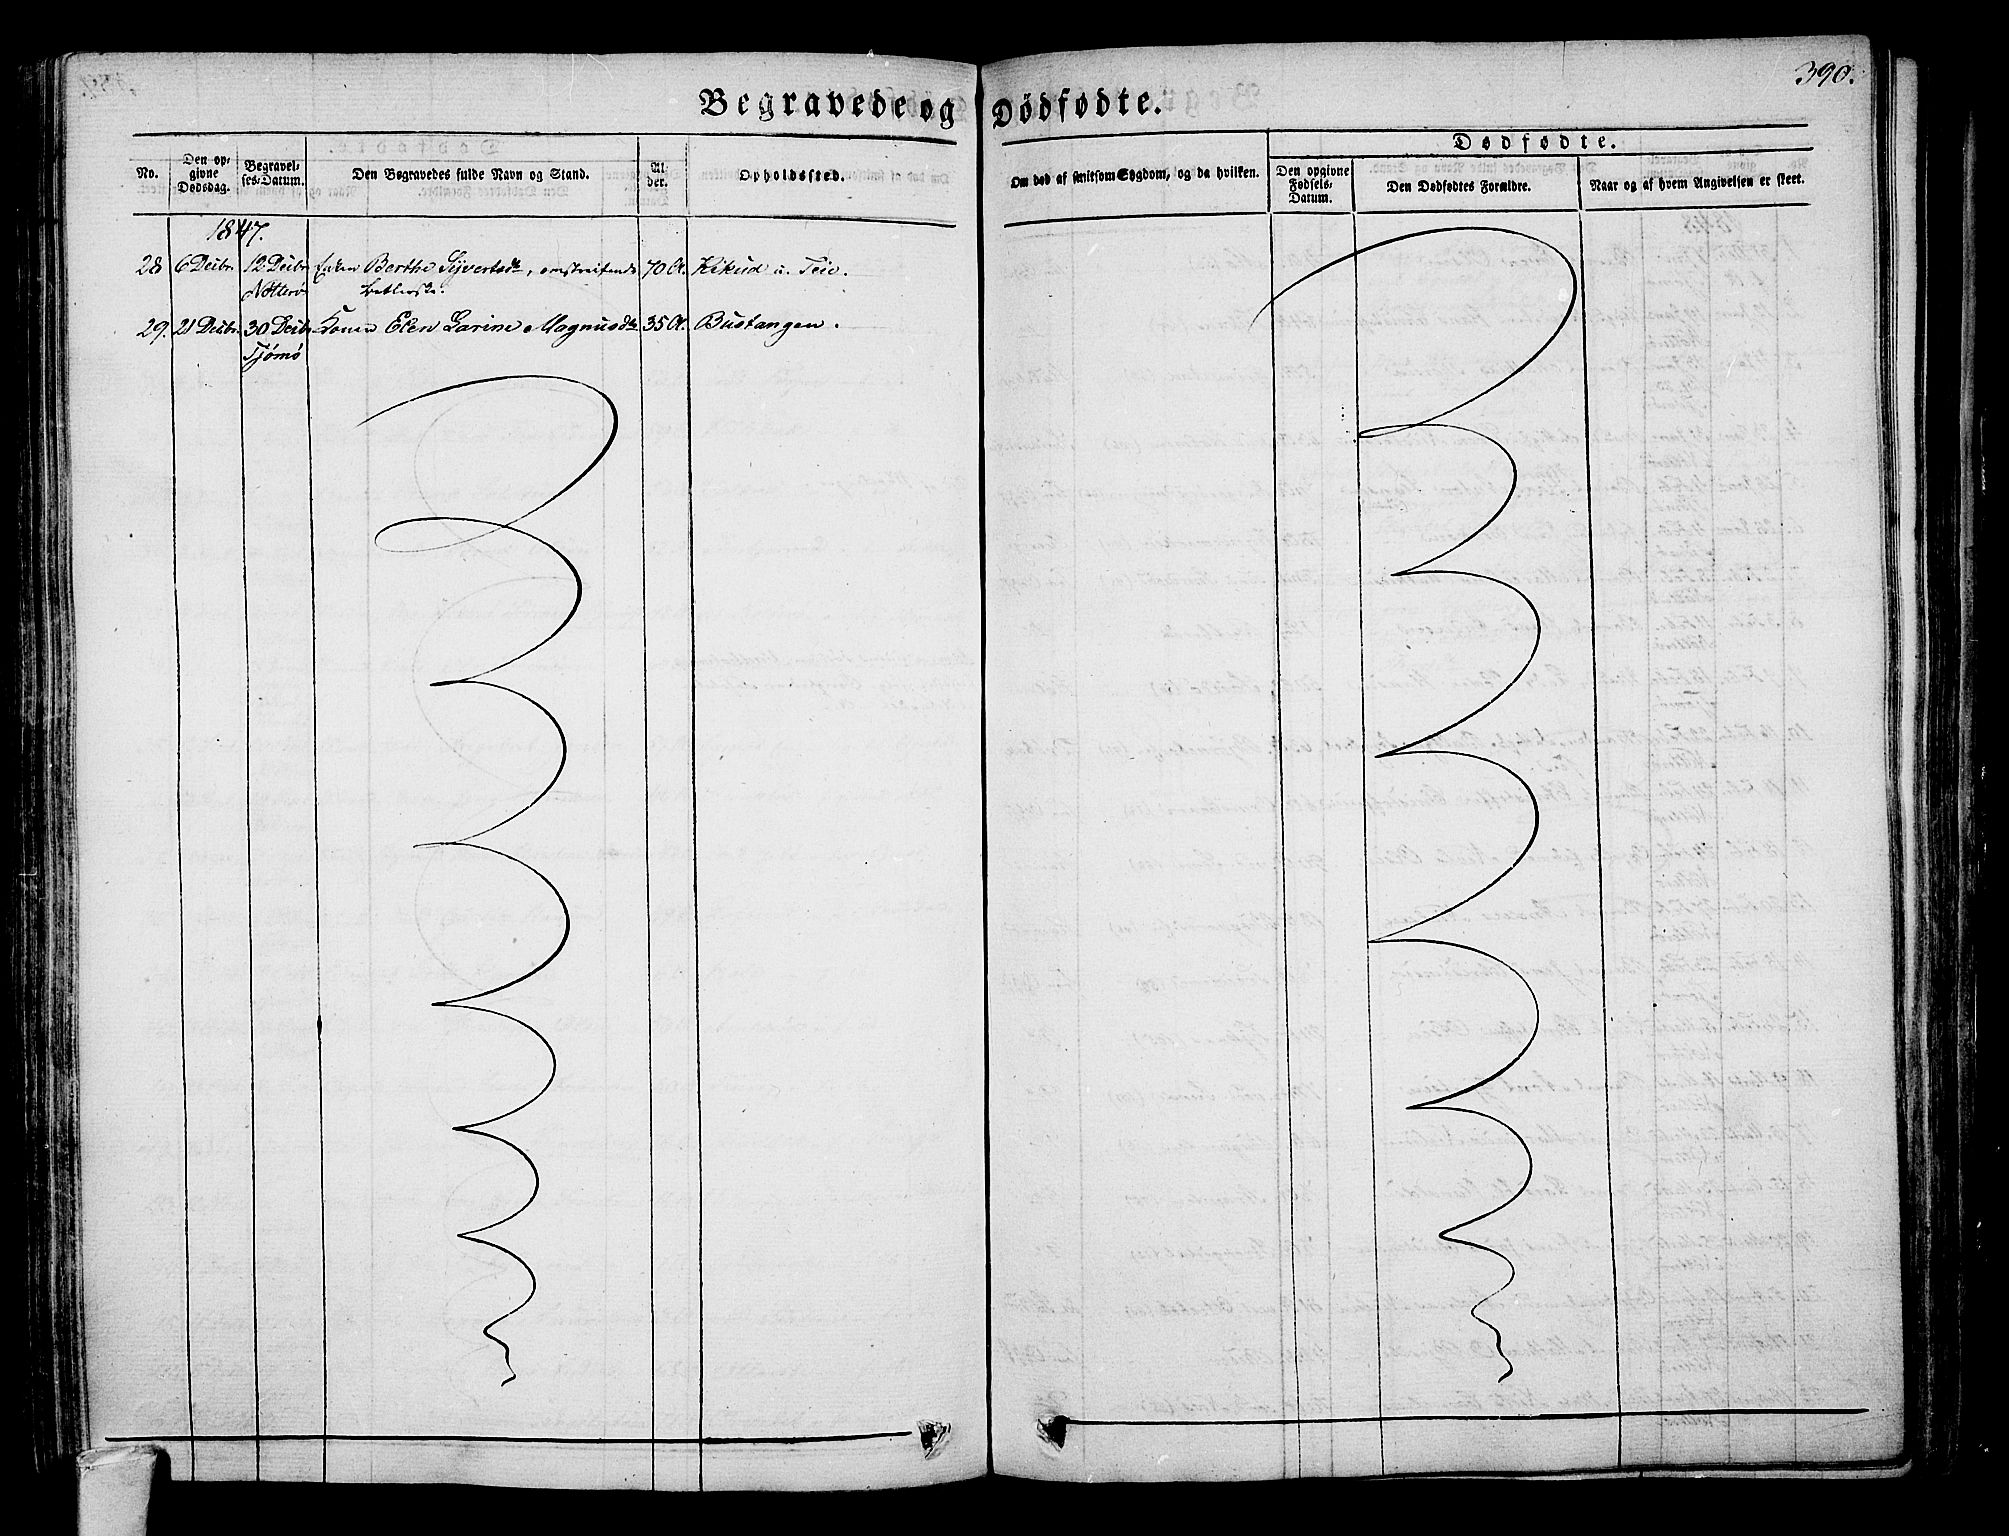 390.
Begravede og Dødfødte.
No.
Den op-
givne
Dødsdag.
Begravel-
ses-Datum.
Den Begravedes fulde Navn og Stand.
Al-
der.
Opholdssted.
Om død af smitsom Sygdom, og da hvilken.
Dødfødte.
Den opgivne
Fødsels-
Datum.
Den Dødfødtes Forældre.
Naar og af hvem Angivelsen er skeet.
1847.
28 6 Decbr. 12 Decbr. Enken Berthe Syvertsdtr, omstreifende 70 A.
Nøtterø betlerske.
29. 21 Decbr. 30 Decbr. Konen Elen Larine Magnusdtr 35 A. Bustangen.
Tjømø